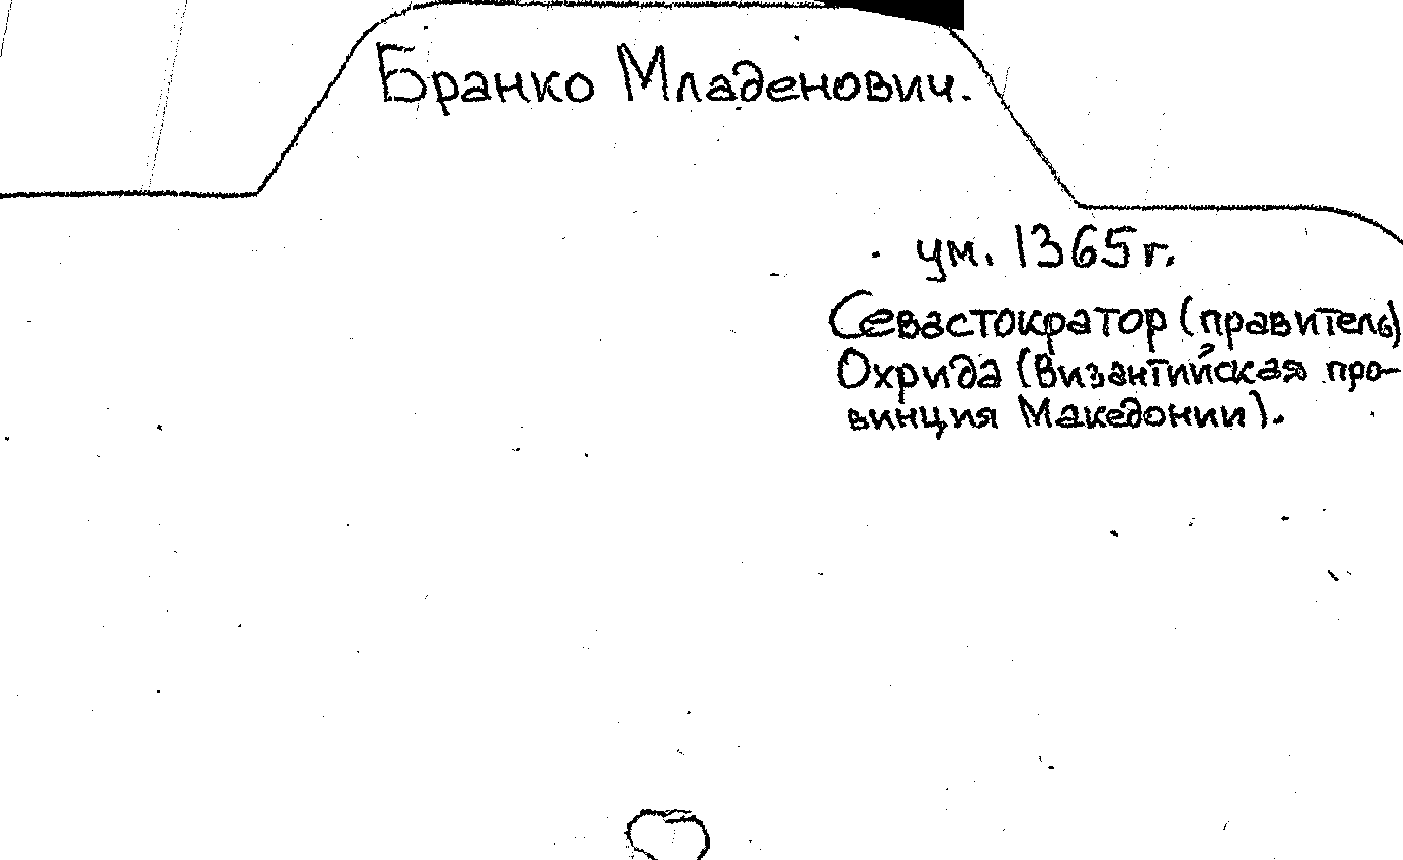 Бранко Младенович.
· ум. 1365 г.
Севастократор (правитель)
Охрида (Византийская про-
винция Македонии).